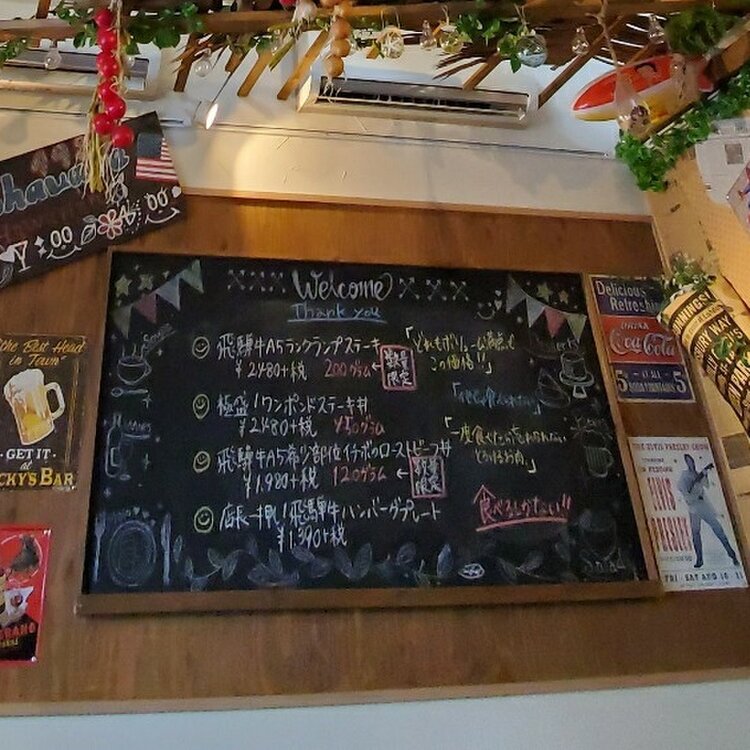 Welcome
Thank you
飛騨牛A5ランクランプステーキ
¥2480+税 200グラム
数量
限定
「どれもボリューム満点で
この価格!!」
極盛!ワンポンドステーキ丼
¥2480+税 450グラム
飛騨牛A5希少部位イチボのローストビーフ丼
¥1,980+税 120グラム
数量
限定
「一度食べたら忘れられない
とろけるお肉。」
店長一押し!飛騨牛ハンバーグプレート
¥1,390+税
食べるしかない!!
Salad
the Best Head
in Town
GET IT
at
CKY'S BAR
Delicious
Refreshing
DRINK
Coca-Cola
5
AT ALL
SODA FOUNTAINS
5
THE ELVIS PRESLEY SHOW
ELVIS
PRESLEY
FRI. SAT AND